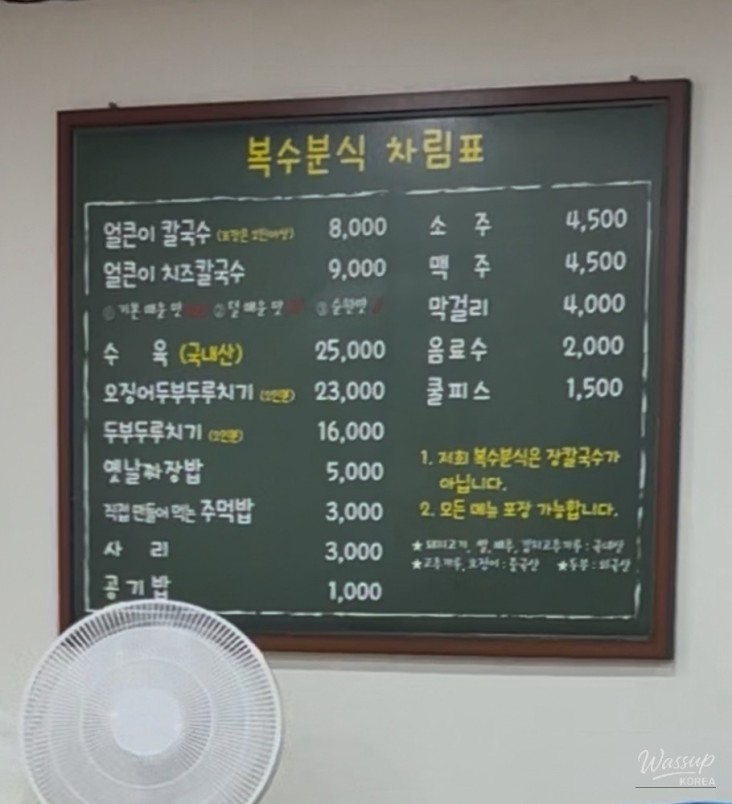 복수분식 차림표
얼큰이 칼국수 (포장은 2인이상) 8,000
얼큰이 치즈칼국수 9,000
① 기본 매운 맛 ② 덜 매운 맛 ③ 순한맛
수 육 (국내산) 25,000
오징어두부두루치기 (2인분) 23,000
두부두루치기 (2인분) 16,000
옛날짜장밥 5,000
직접 만들어 먹는 주먹밥 3,000
사 리 3,000
공기밥 1,000
소 주 4,500
맥 주 4,500
막걸리 4,000
음료수 2,000
쿨피스 1,500
1. 저희 복수분식은 장칼국수가
아닙니다.
2. 모든 메뉴 포장 가능합니다.
★돼지고기, 쌀, 배추, 김치고추가루 : 국내산
★고추가루, 오징어 : 중국산 ★두부 : 외국산
Wassup
KOREA